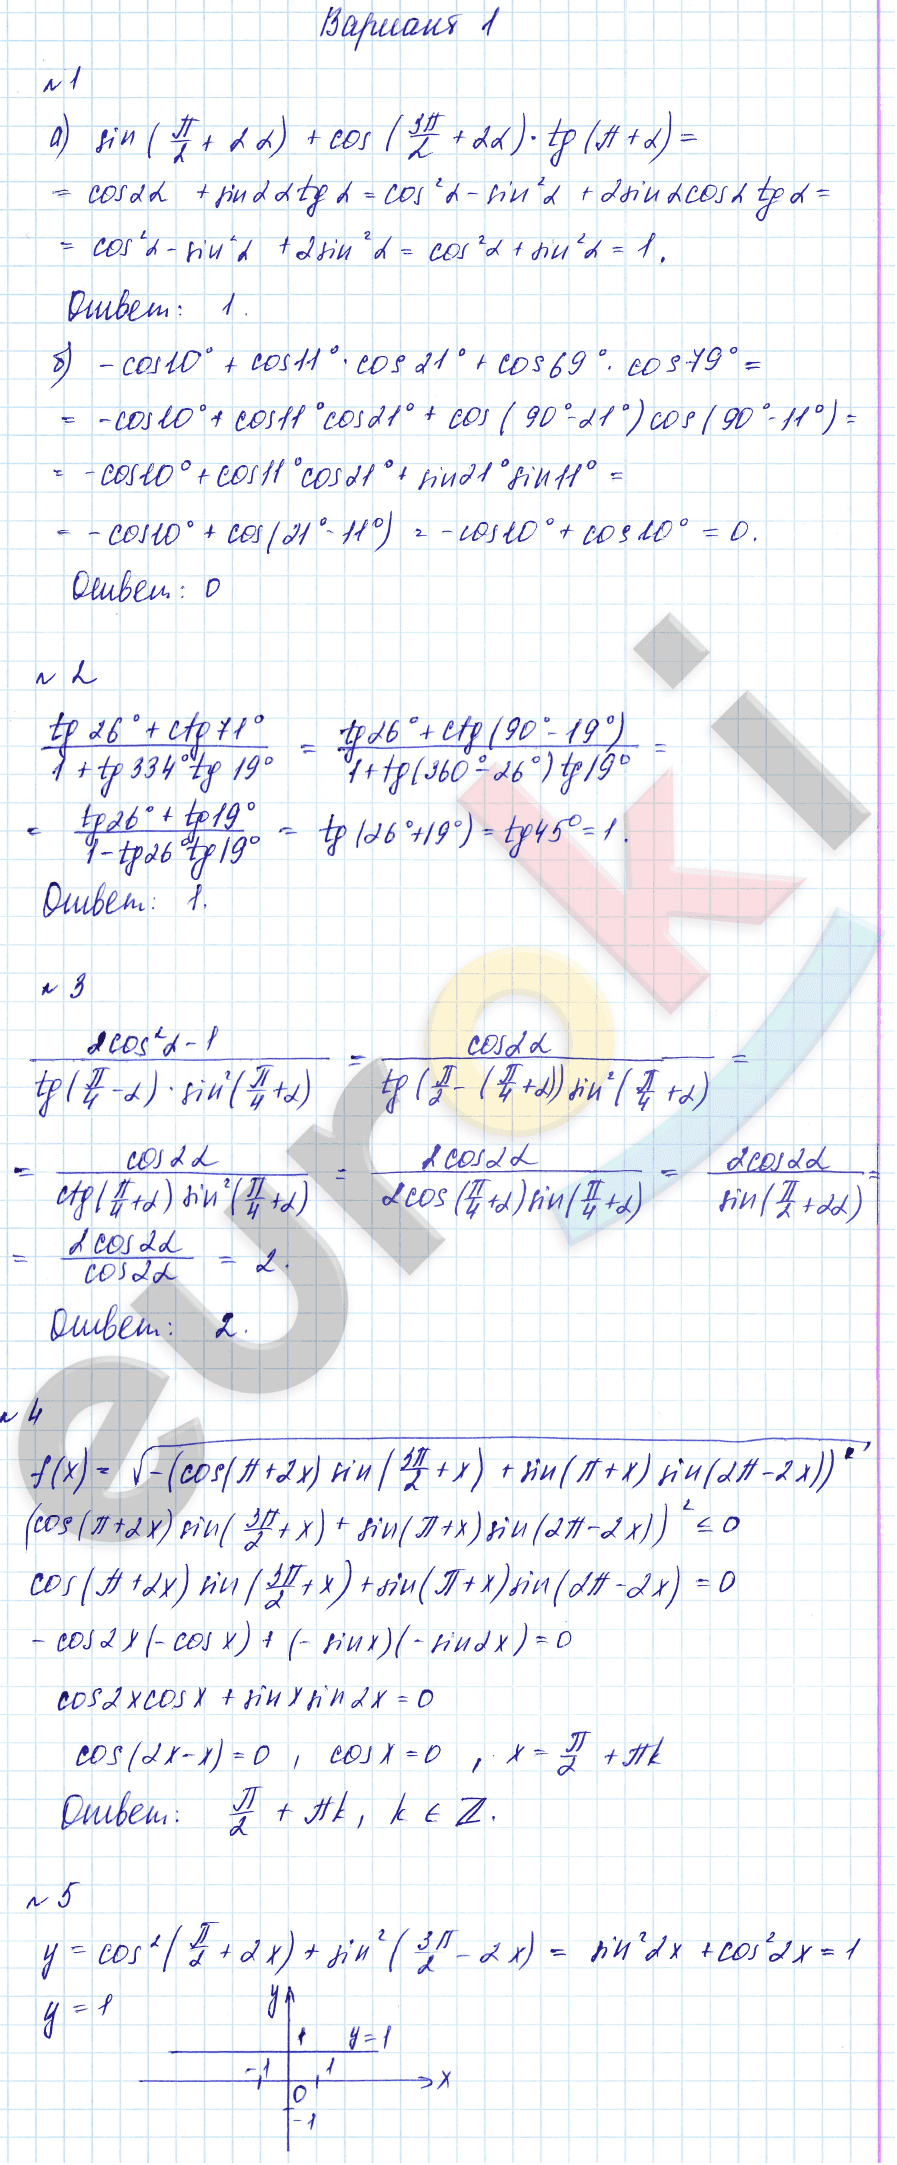 Вариант 1
№1
а) sin(π/2 + 2α) + cos(3π/2 + 2α)·tg(π+α) =
= cos2α + sin2α tgα = cos²α - sin²α + 2sinαcosα tgα =
= cos²α - sin²α + 2sin²α = cos²α + sin²α = 1.
Ответ: 1.
б) -cos10° + cos11°·cos21° + cos69°·cos79° =
= -cos10° + cos11°cos21° + cos(90°-21°)cos(90°-11°) =
= -cos10° + cos11°cos21° + sin21°sin11° =
= -cos10° + cos(21°-11°) = -cos10° + cos10° = 0.
Ответ: 0
№2
(tg26° + ctg71°)/(1 + tg334°tg19°) = (tg26° + ctg(90°-19°))/(1 + tg(360°-26°)tg19°) =
= (tg26° + tg19°)/(1 - tg26°tg19°) = tg(26°+19°) = tg45° = 1.
Ответ: 1.
№3
(2cos²α - 1)/(tg(π/4 - α)·sin²(π/4 + α)) = cos2α/(tg(π/2 - (π/4 + α))sin²(π/4 + α)) =
= cos2α/(ctg(π/4 + α)sin²(π/4 + α)) = 2cos2α/(2cos(π/4 + α)sin(π/4 + α)) = 2cos2α/sin(π/2 + 2α) =
= 2cos2α/cos2α = 2.
Ответ: 2.
№4
f(x) = √(-(cos(π+2x)sin(3π/2 + x) + sin(π+x)sin(2π-2x))²)
(cos(π+2x)sin(3π/2 + x) + sin(π+x)sin(2π-2x))² ≤ 0
cos(π+2x)sin(3π/2 + x) + sin(π+x)sin(2π-2x) = 0
-cos2x(-cosx) + (-sinx)(-sin2x) = 0
cos2xcosx + sinxsin2x = 0
cos(2x-x) = 0, cosx = 0, x = π/2 + πk
Ответ: π/2 + πk, k ∈ Z.
№5
y = cos²(π/2 + 2x) + sin²(3π/2 - 2x) = sin²2x + cos²2x = 1
y = 1
y
1 y=1
-1 1
0 x
-1
euroki